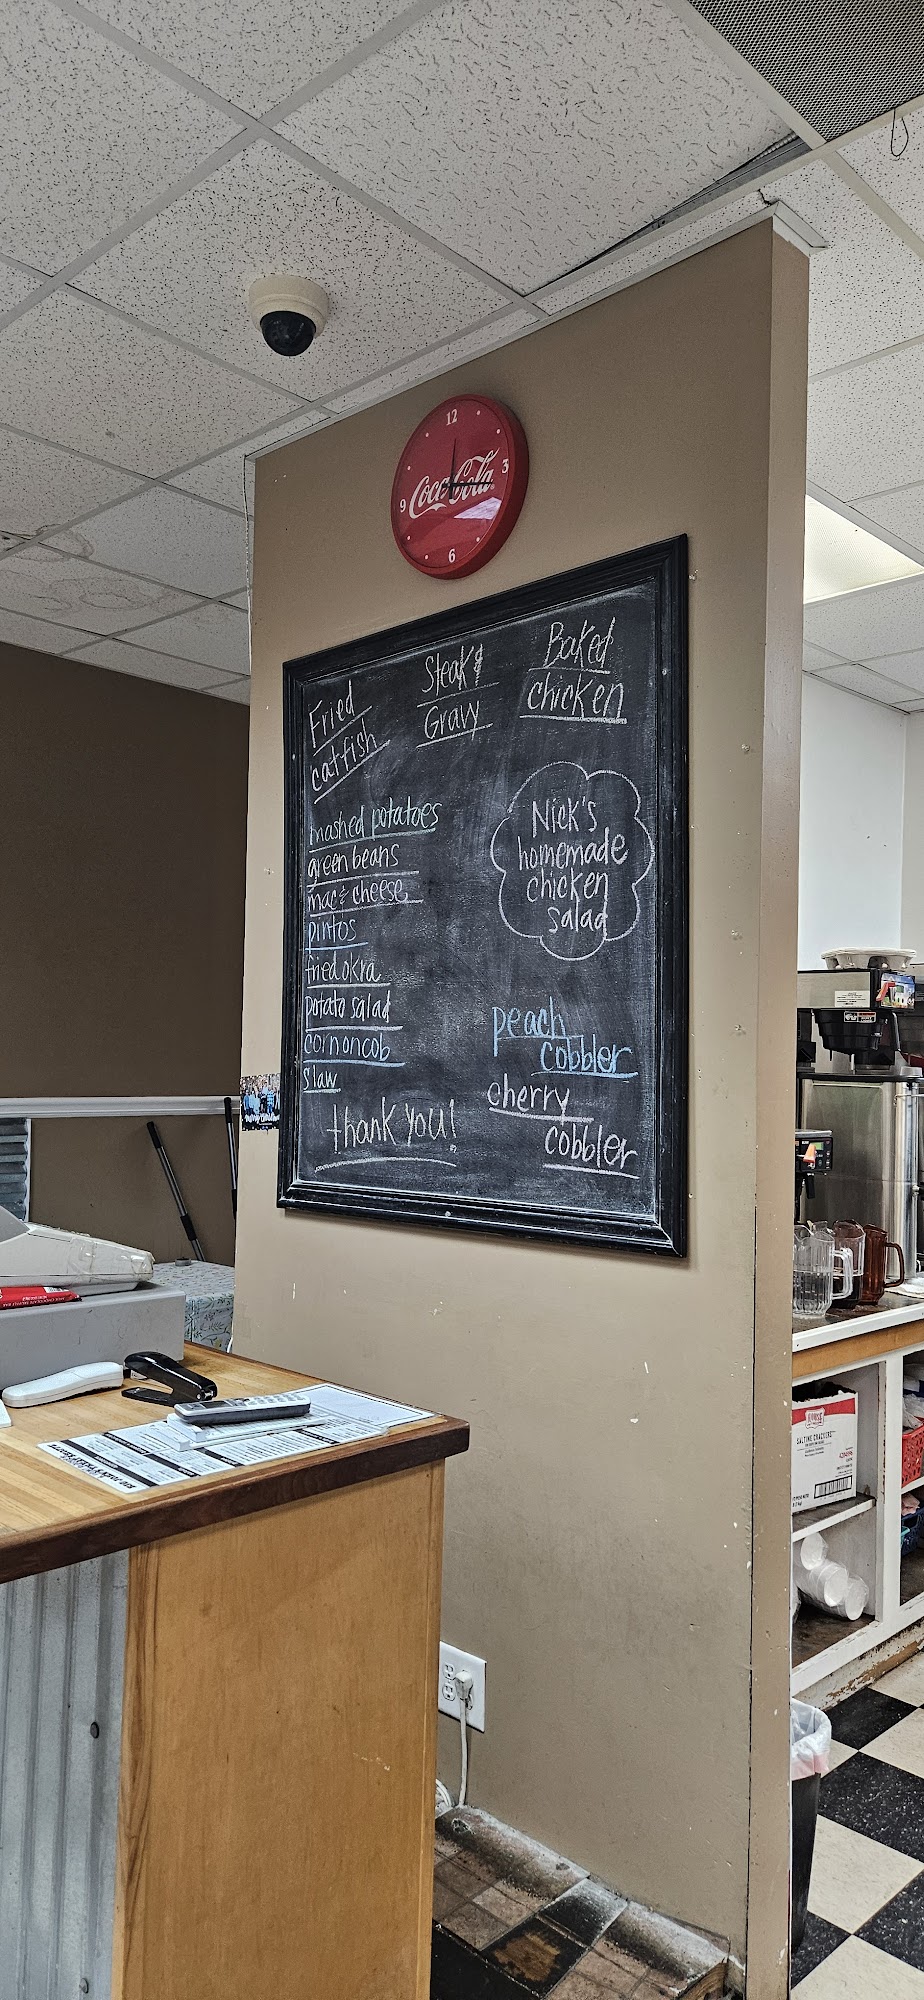 12
3
Coca-Cola
9
6
Fried
catfish
Steak &
Gravy
Baked
chicken
mashed potatoes
green beans
mac & cheese
pintos
fried okra
potato salad
corn on cob
slaw
thank you!
Nick's
homemade
chicken
salad
peach
cobbler
cherry
cobbler
SALTINE CRACKERS